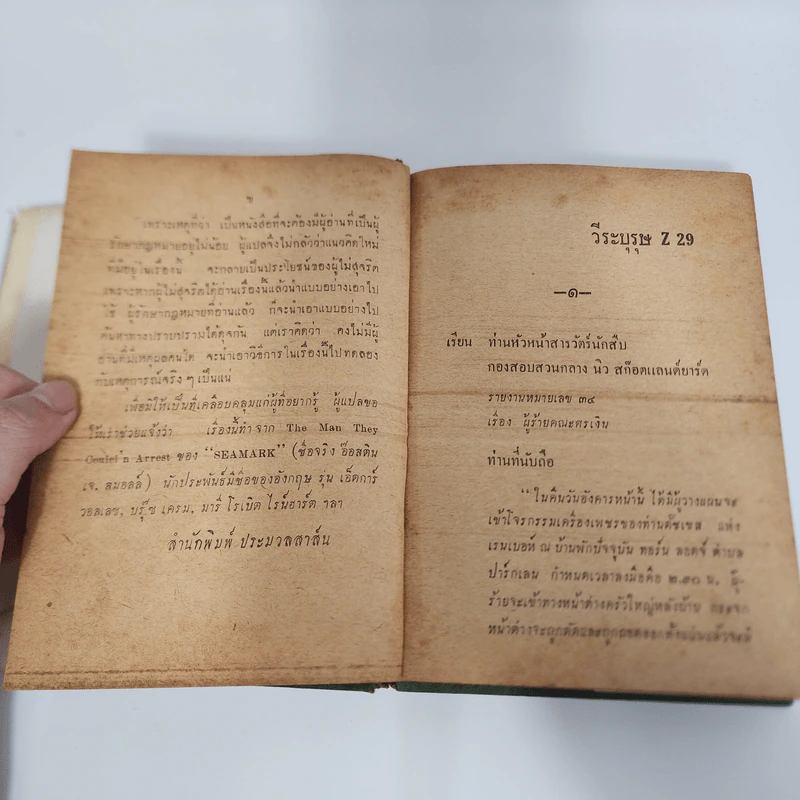 ข
เพราะเหตุที่ว่า เป็นหนังสือที่จะต้องมีผู้อ่านที่เป็นผู้
รักษากฎหมายอยู่ไม่น้อย ผู้แปลจึงไม่กลัวว่าแนวคิดใหม่
ที่มีอยู่ในเรื่องนี้ จะกลายเป็นประโยชน์ของผู้ไม่สุจริต
เพราะหากผู้ไม่สุจริตได้อ่านเรื่องนี้แล้วนำแบบอย่างเอาไป
ใช้ ผู้รักษากฎหมายที่อ่านแล้ว ก็จะนำเอาแบบอย่างไป
ค้นหาทางปราบปรามได้ดุจกัน แต่เราคิดว่า คงไม่มีผู้
อ่านที่มีเหตุผลคนใด จะนำเอาวิธีการในเรื่องนี้ไปทดลอง
กับเหตุการณ์จริง ๆ เป็นแน่
เพื่อมิให้เป็นที่เคลือบคลุมแก่ผู้ที่อยากรู้ ผู้แปลขอ
ให้เราช่วยแจ้งว่า เรื่องนี้ทำจาก The Man They
Couldn't Arrest ของ "SEAMARK" (ชื่อจริง อ๊อสติน
เจ. สมอลล์) นักประพันธ์มีชื่อของอังกฤษ รุ่น เอ็ดการ์
วอลเลซ, บรุ๊ซ เครม, มารี่ โรเบิต ไรน์ฮาร์ต ฯลฯ
สำนักพิมพ์ ประมวลสาส์น
วีระบุรุษ Z 29
—๑—
เรียน ท่านหัวหน้าสารวัตร์นักสืบ
กองสอบสวนกลาง นิว สก๊อตแลนด์ยาร์ด
รายงานหมายเลข ๓๔
เรื่อง ผู้ร้ายคณะตรเงิน
ท่านที่นับถือ
"ในคืนวันอังคารหน้านี้ ได้มีผู้วางแผนจะ
เข้าโจรกรรมเครื่องเพชรของท่านดัชเชส แห่ง
เรนเบอห์ ณ บ้านพักปัจจุบัน ทอร์น ลอดจ์ ตำบล
ปาร์กเลน กำหนดเวลาลงมือคือ ๒.๓๐ น. ผู้
ร้ายจะเข้าทางหน้าต่างครัวใหญ่หลังบ้าน กระจก
หน้าต่างจะถูกตัดและถูกถอดออกทั้งแผ่นแล้วจะมี